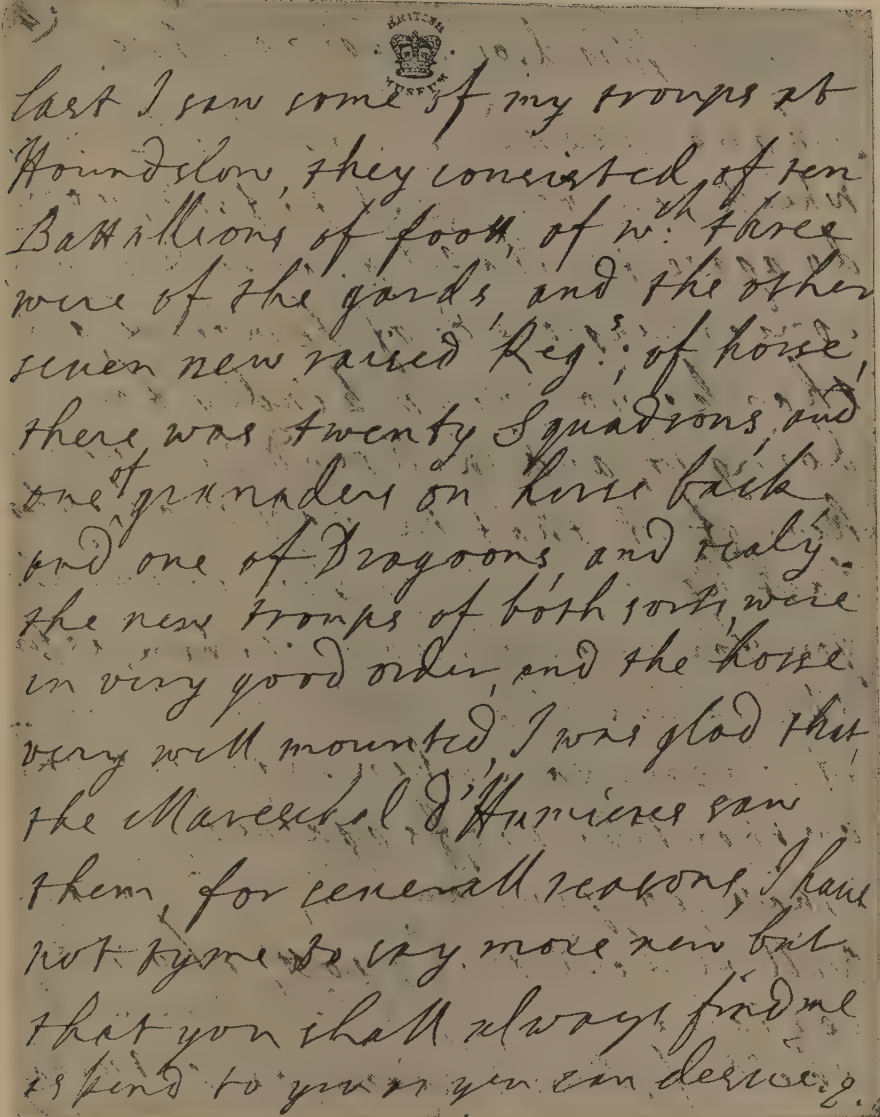 BRITISH MUSEUM
last I saw some of my troups at
Hounslow, they consisted of ten
Battallions of foott, of wch. three
were of the gards, and the other
seven new raised Regts; of horse,
there was twenty Squadrons, and
one of granaders on horse back
and one of Dragoons, and realy
the new troups of both sorts, were
in very good order, and the horse
very well mounted, I was glad that
the Mareschal d'Humieres saw
them, for severall reasons, I have
not tyme to say more now but
that you shall always find me
as kind to you as you can desire.